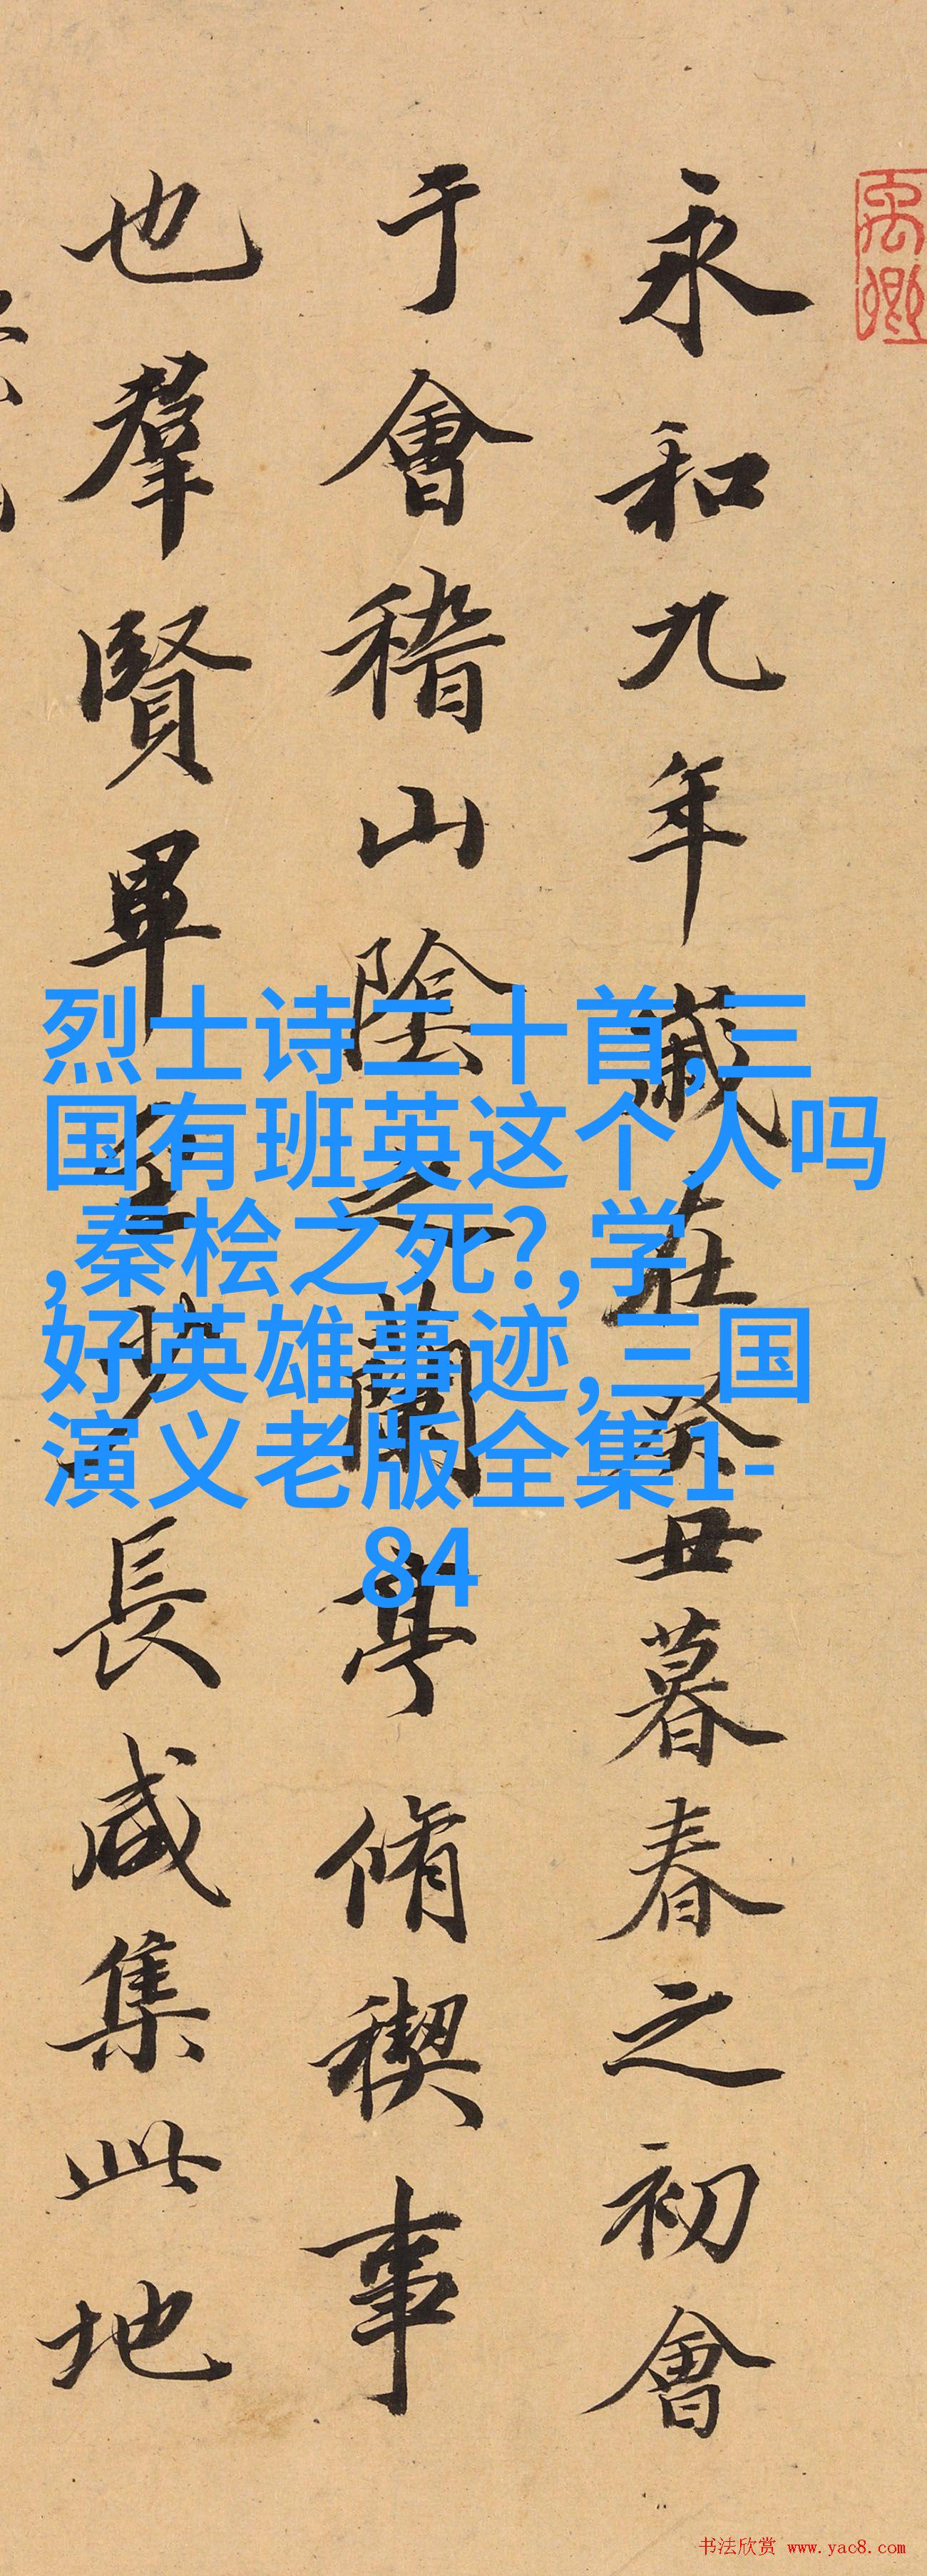 永和九年歲在癸丑暮春之初會
于會稽山陰之蘭亭脩稧事
也羣賢畢至少長咸集此地
禹卿
烈士诗二十首,三
国有班英这个人吗
,秦桧之死?,学
好英雄事迹,三国
演义老版全集1-
84
书法欣赏 www.yac8.com